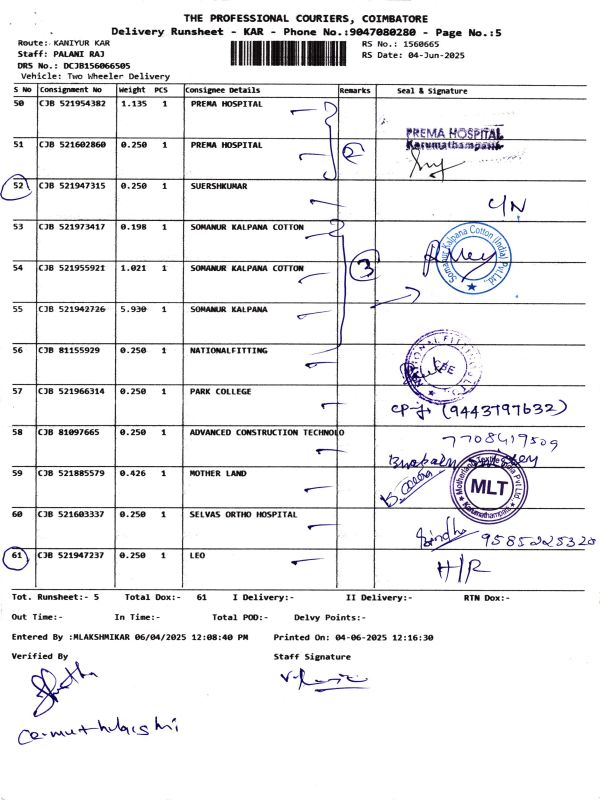 THE PROFESSIONAL COURIERS, COIMBATORE
Delivery Runsheet - KAR - Phone No.:9047080280 - Page No.:5
Route: KANIYUR KAR
RS No.: 1560665
Staff: PALANI RAJ
RS Date: 04-Jun-2025
DRS No.: DCJB156066505
Vehicle: Two Wheeler Delivery
S No Consignment No Weight PCS Consignee Details Remarks Seal & Signature
50 CJB 521954382 1.135 1 PREMA HOSPITAL
PREMA HOSPITAL
Karumathampatti
51 CJB 521602860 0.250 1 PREMA HOSPITAL 2
52 CJB 521947315 0.250 1 SUERSHKUMAR
C/N
53 CJB 521973417 0.198 1 SOMANUR KALPANA COTTON
Somanur Kalpana Cotton (India) Pvt.Ltd.,
54 CJB 521955921 1.021 1 SOMANUR KALPANA COTTON 3
55 CJB 521942726 5.930 1 SOMANUR KALPANA
56 CJB 81155929 0.250 1 NATIONALFITTING
NATIONAL FITTINGS
CBE
57 CJB 521966314 0.250 1 PARK COLLEGE
(9443797632)
58 CJB 81097665 0.250 1 ADVANCED CONSTRUCTION TECHNOLO
7708419509
59 CJB 521885579 0.426 1 MOTHER LAND
Motherland Textile India Pvt.Ltd.
MLT
Karumathampatti
60 CJB 521603337 0.250 1 SELVAS ORTHO HOSPITAL
9585225320
61 CJB 521947237 0.250 1 LEO
H/R
Tot. Runsheet:- 5 Total Dox:- 61 I Delivery:- II Delivery:- RTN Dox:-
Out Time:- In Time:- Total POD:- Delvy Points:-
Entered By :MLAKSHMIKAR 06/04/2025 12:08:40 PM Printed On: 04-06-2025 12:16:30
Verified By Staff Signature